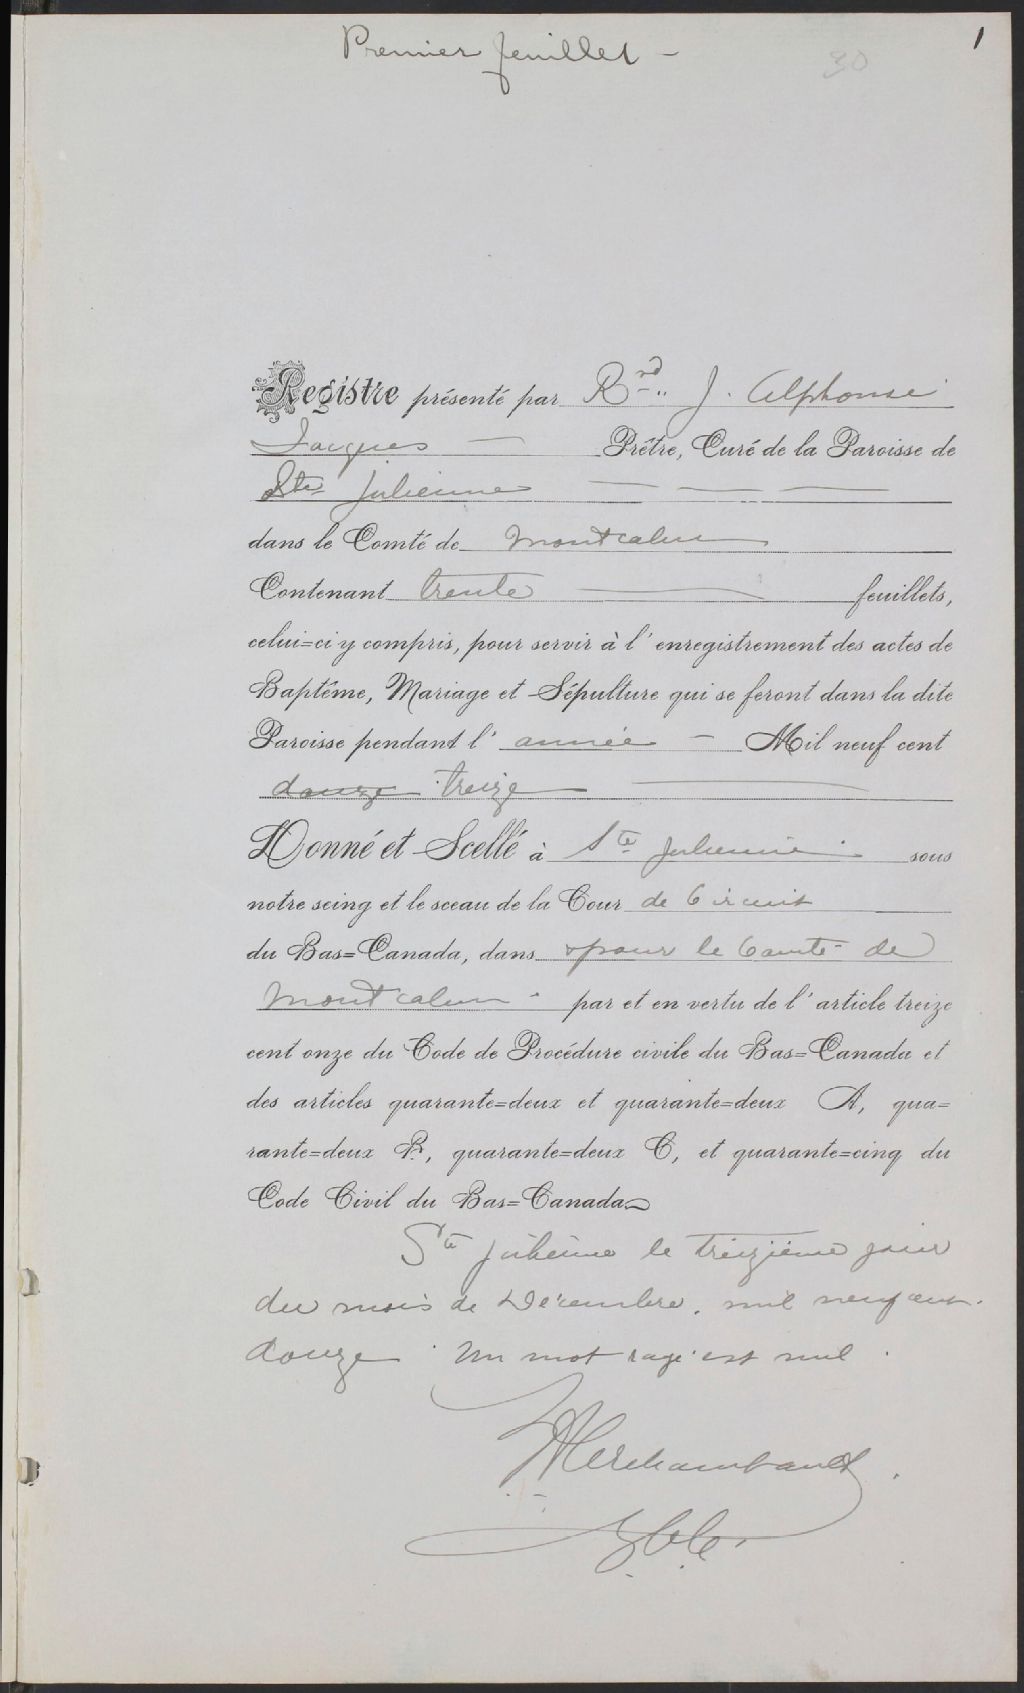 Premier feuillet -
1
30
Registre présenté par Rnd. J. Alphonse
Jacques — Prêtre, Curé de la Paroisse de
Ste Julienne — — —
dans le Comté de Montcalm
Contenant trente — feuillets,
celui=ci y compris, pour servir à l'enregistrement des actes de
Baptême, Mariage et Sépulture qui se feront dans la dite
Paroisse pendant l'année — Mil neuf cent
douze treize —
Donné et Scellé à Ste Julienne sous
notre seing et le sceau de la Cour de Circuit
du Bas=Canada, dans & pour le Comté de
Montcalm par et en vertu de l'article treize
cent onze du Code de Procédure civile du Bas=Canada et
des articles quarante=deux et quarante=deux A, qua=
rante=deux B, quarante=deux C, et quarante=cinq du
Code Civil du Bas=Canada
Ste Julienne le treizième jour
du mois de Décembre, mil neuf cent
douze. Un mot rayé est nul.
Archambault